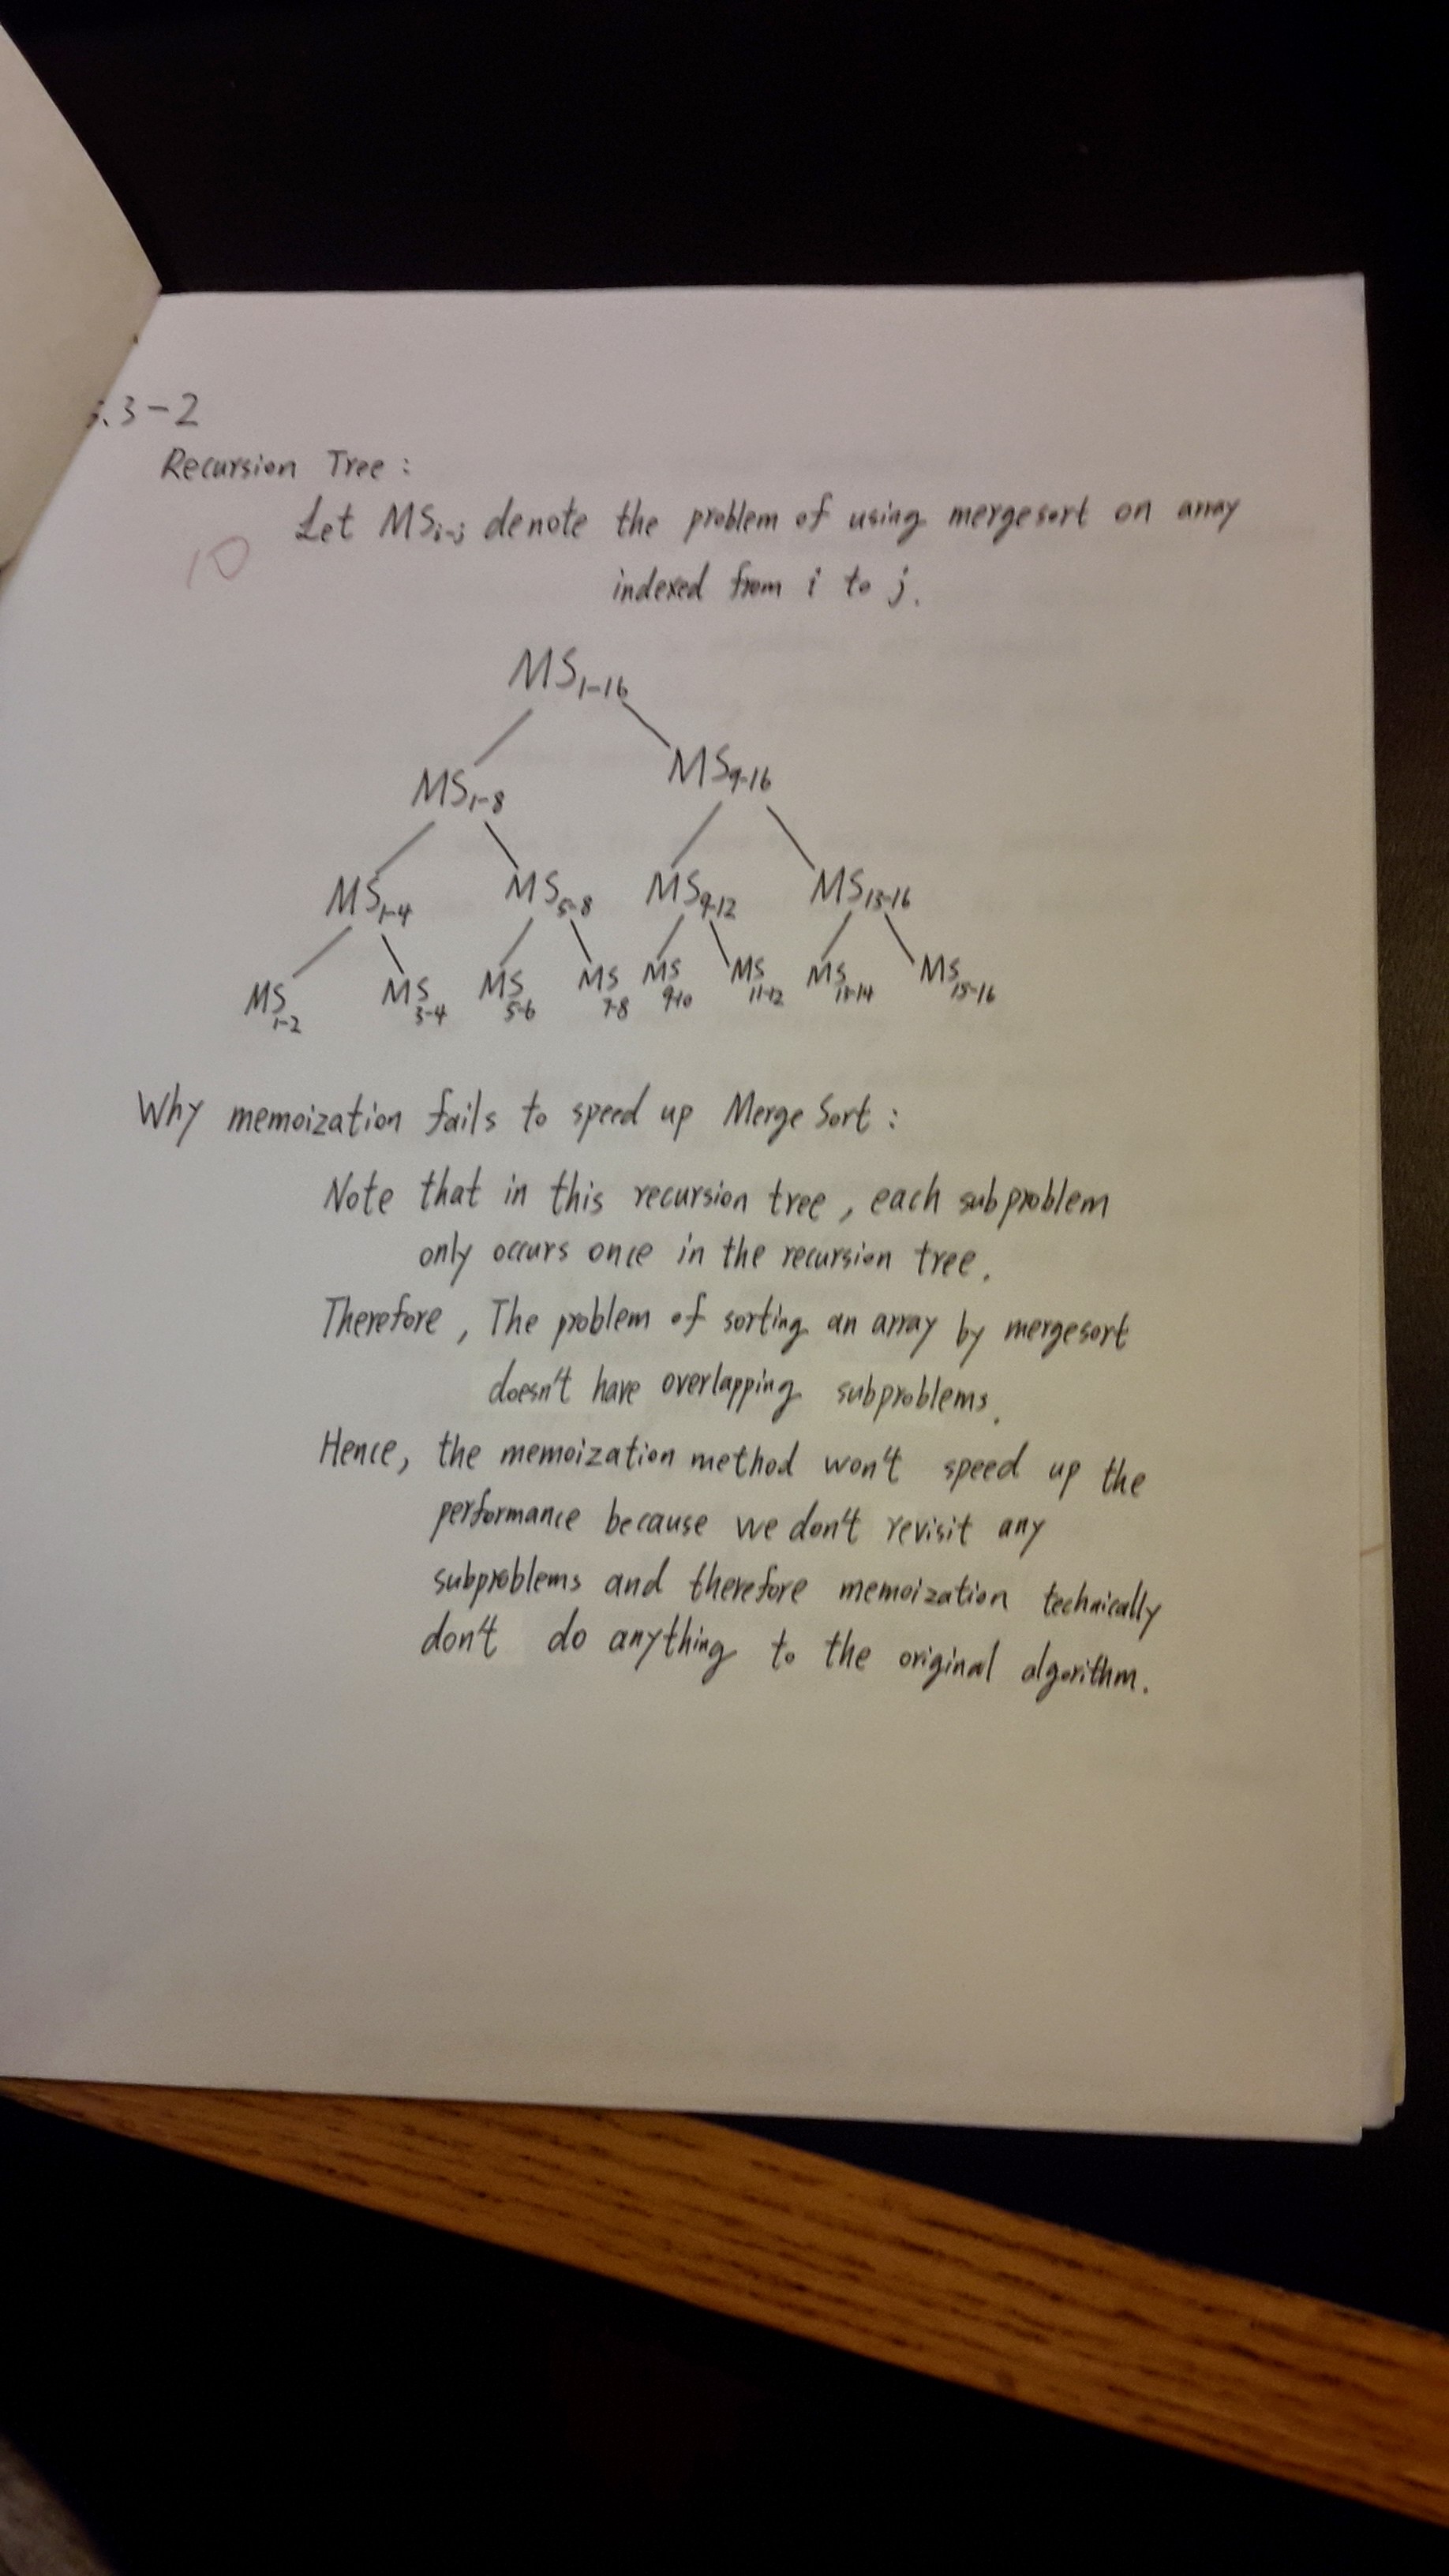 .3-2
Recursion Tree :
Let MSi-j denote the problem of using mergesort on array
10
indexed from i to j.
MS1-16
MS1-8 MS9-16
MS1-4 MS5-8 MS9-12 MS13-16
MS1-2 MS3-4 MS5-6 MS7-8 MS9-10 MS11-12 MS13-14 MS15-16
Why memoization fails to speed up Merge Sort :
Note that in this recursion tree, each subproblem
only occurs once in the recursion tree.
Therefore, The problem of sorting an array by mergesort
doesn't have overlapping subproblems.
Hence, the memoization method won't speed up the
performance because we don't revisit any
subproblems and therefore memoization technically
don't do anything to the original algorithm.